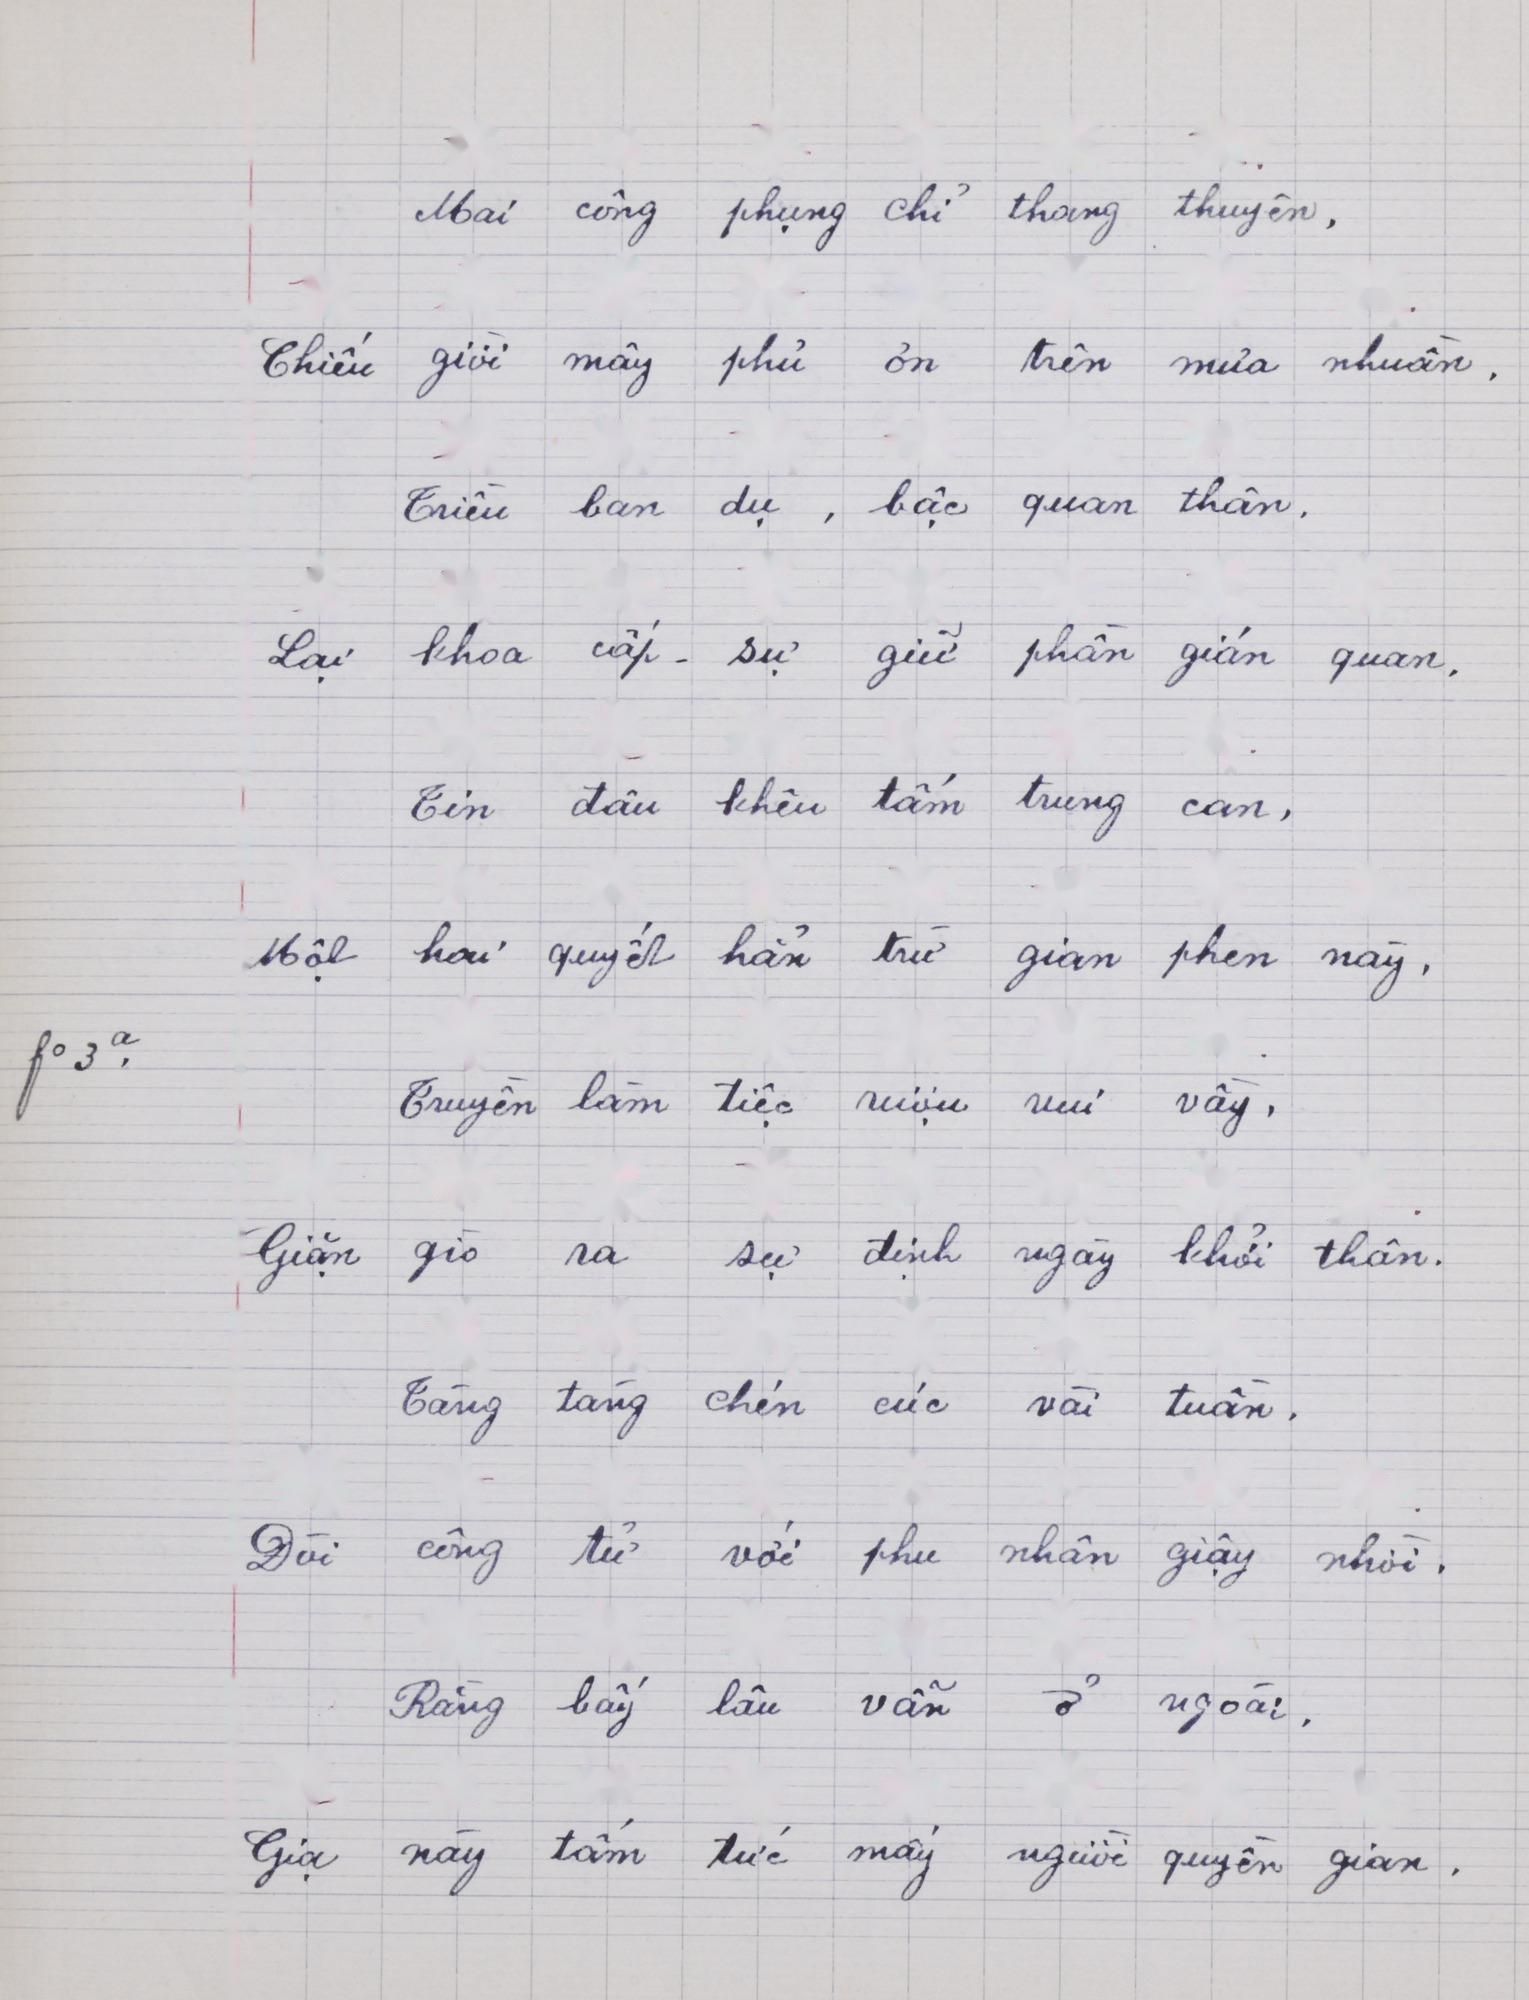 Mai công phụng chỉ thang thuyên,
Chiếu giời mây phủ ơn trên mưa nhuần.
Triều ban dụ, bậc quan thân.
Lại khoa cấp-sự giữ phần gián quan.
Tin đâu khêu tấm trung can,
Một hai quyết hẳn trừ gian phen này,
fº 3ª.
Truyền làm tiệc rượu vui vầy,
Giặn giò ra sự định ngày khởi thân.
Tàng tàng chén cúc vài tuần.
Đòi công tử với phu nhân giậy nhời.
Rằng bấy lâu vẫn ở ngoài,
Giạ này tấm tức mấy người quyền gian.